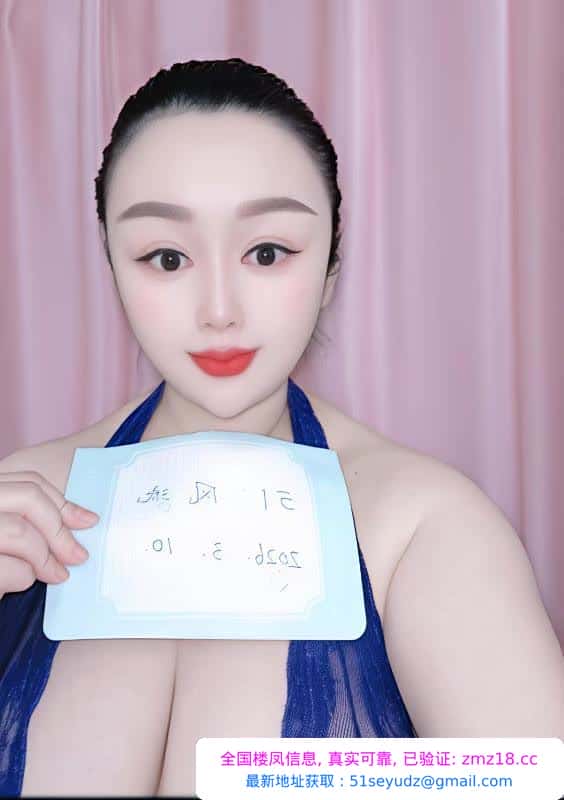 51. 风流
2026. 3. 10.
全国楼凤信息, 真实可靠, 已验证: zmz18.cc
最新地址获取：51seyudz@gmail.com